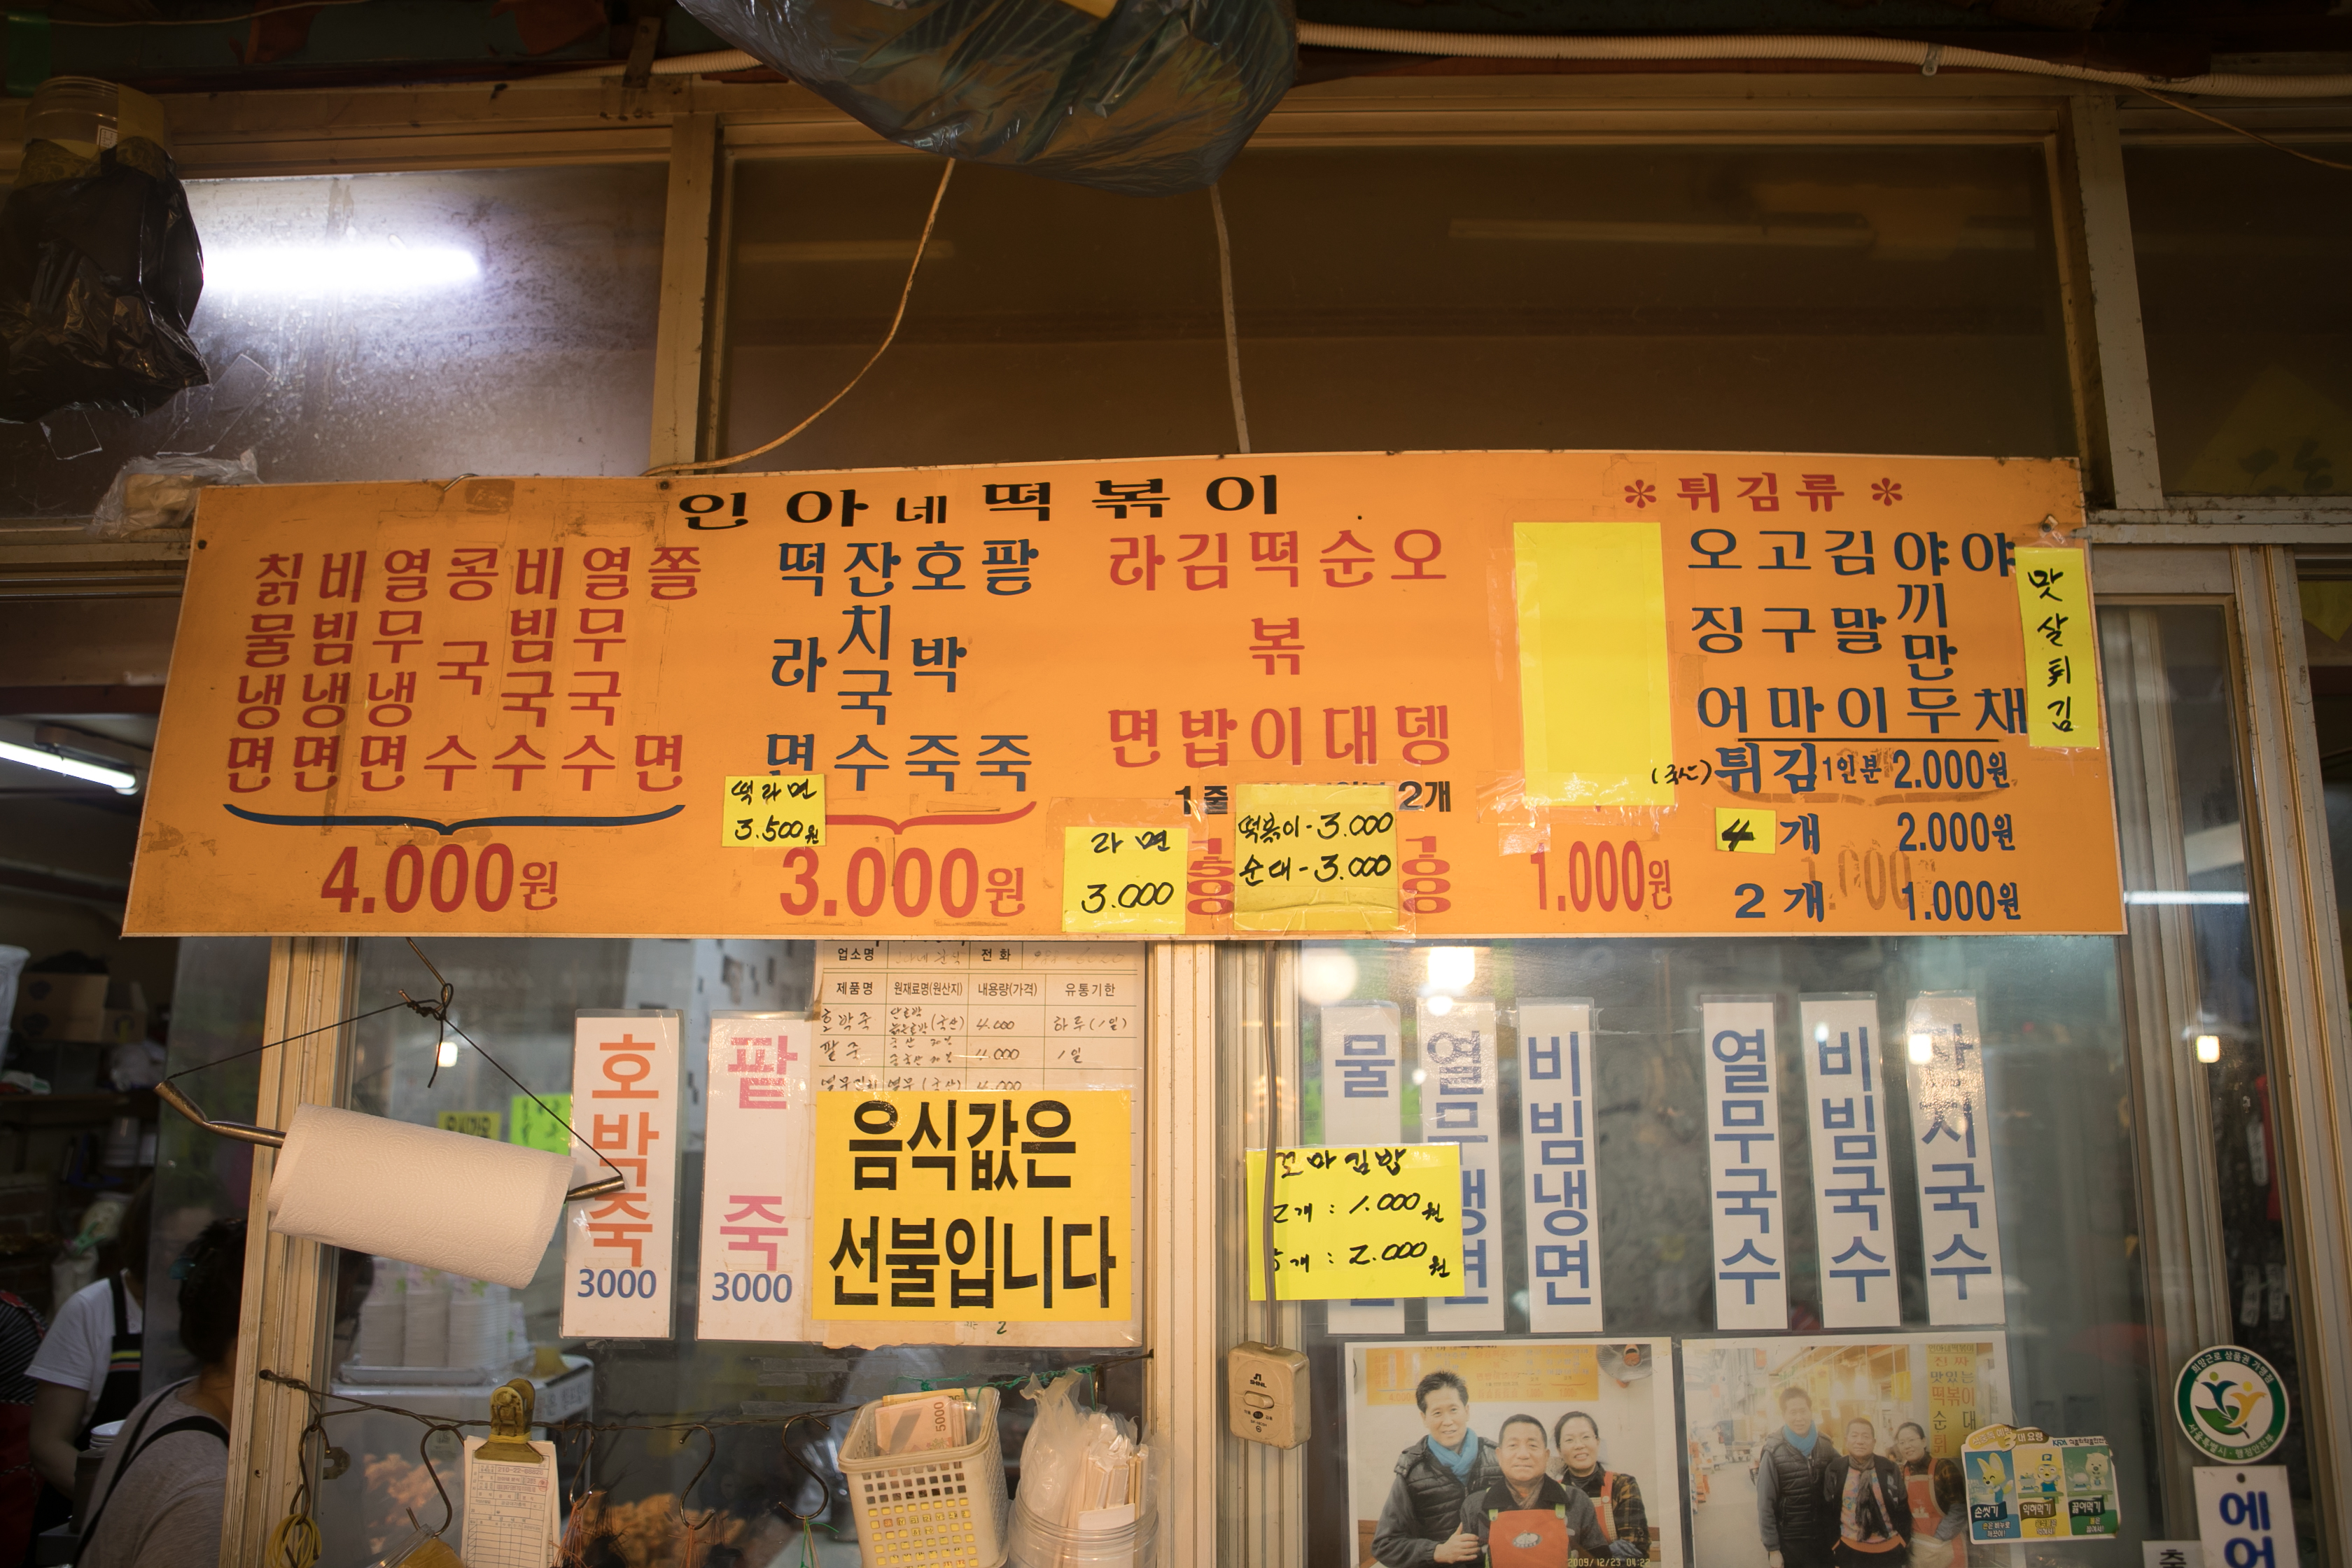 인아네떡볶이
칡물냉면
비빔냉면
열무냉면
콩국수
비빔국수
열무국수
쫄면
4.000원
떡라면
잔치국수
호박죽
팥죽
떡라면
3.500원
3.000원
라면
김밥
떡볶이
순대
오뎅
1줄
2개
라면
3.000
떡볶이-3.000
순대-3.000
1.000원
*튀김류*
오징어
고구마
김말이
야끼만두
야채
맛살튀김
(국산)튀김1인분 2.000원
4개 2.000원
2개 1.000원
호박죽
3000
팥죽
3000
업소명 전화
제품명 원재료명(원산지) 내용량(가격) 유통기한
호박죽 (국산) 4.000 하루(1일)
팥죽 4.000 1일
4.000
음식값은
선불입니다
꼬마김밥
2개 : 1.000원
5개 : 2.000원
물
열무냉면
비빔냉면
열무국수
비빔국수
잔치국수
진짜
맛있는
떡볶이
순대
5000
2009/12/23
손씻기
익혀먹기
끓여먹기
에어